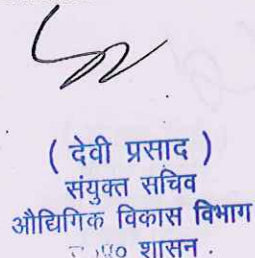 ( देवी प्रसाद )
संयुक्त सचिव
औद्यिगिक विकास विभाग
शासन .